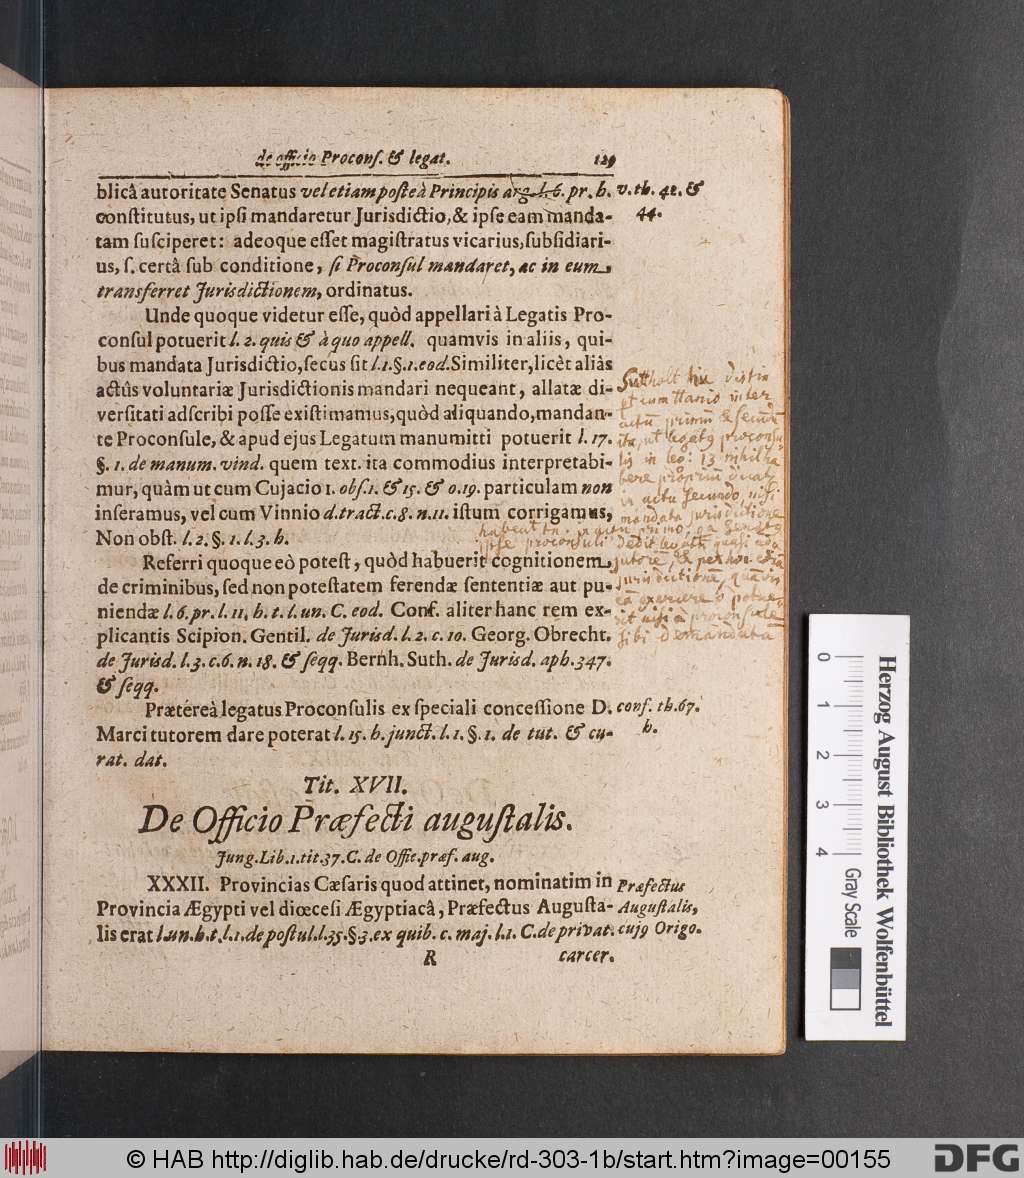 de officio Proconſ. & legat. 129
blicâ autoritate Senatus vel etiam poſteà Principis arg. l. 6. pr. h. v. th. 42. &
conſtitutus, ut ipſi mandaretur Jurisdictio, & ipſe eam manda- 44.
tam ſuſciperet: adeoque eſſet magiſtratus vicarius, ſubſidiari-
us, ſ. certâ ſub conditione, ſi Proconſul mandaret, ac in eum
transferret Jurisdictionem, ordinatus.
Unde quoque videtur eſſe, quòd appellari à Legatis Pro-
conſul potuerit l. 2. quis & à quo appell. quamvis in aliis, qui-
bus mandata Jurisdictio, ſecus ſit l. 1. §. 1. eod. Similiter, licèt aliàs
actûs voluntariæ Jurisdictionis mandari nequeant, allatæ di-
verſitati adſcribi poſſe exiſtimamus, quòd aliquando, mandan-
te Proconſule, & apud ejus Legatum manumitti potuerit l. 17.
§. 1. de manum. vind. quem text. ita commodius interpretabi-
mur, quàm ut cum Cujacio 1. obſ. 1. & 15. & o. 19. particulam non
inſeramus, vel cum Vinnio d. tract. c. 8. n. 11. iſtum corrigamus,
Non obſt. l. 2. §. 1. l. 3. h.
Referri quoque eò poteſt, quòd habuerit cognitionem
de criminibus, ſed non poteſtatem ferendæ ſententiæ aut pu-
niendæ l. 6. pr. l. 11. h. t. l. un. C. eod. Conf. aliter hanc rem ex-
plicantis Scipion. Gentil. de Jurisd. l. 2. c. 10. Georg. Obrecht.
de Jurisd. l. 3. c. 6. n. 18. & ſeqq. Bernh. Suth. de Jurisd. aph. 347.
& ſeqq.
Prætereà legatus Proconſulis ex ſpeciali conceſſione D. conf. th. 67.
Marci tutorem dare poterat l. 15. h. junct. l. 1. §. 1. de tut. & cu- h.
rat. dat.
Tit. XVII.
De Officio Præfecti auguſtalis.
Jung. Lib. 1. tit. 37. C. de Offic. præf. aug.
XXXII. Provincias Cæſaris quod attinet, nominatim in Præfectus
Provincia Ægypti vel diœceſi Ægyptiacâ, Præfectus Auguſta- Auguſtalis,
lis erat l. un. h. t. l. 1. de poſtul. l. 35. §. 3. ex quib. c. maj. l. 1. C. de privat. cuj9 Origo.
R carcer.
hic distin
mandata jurisdictione
jurisdictionē, quāvis
sibi demandata
Herzog August Bibliothek Wolfenbüttel
0 1 2 3 4 Gray Scale
© HAB http://diglib.hab.de/drucke/rd-303-1b/start.htm?image=00155
DFG